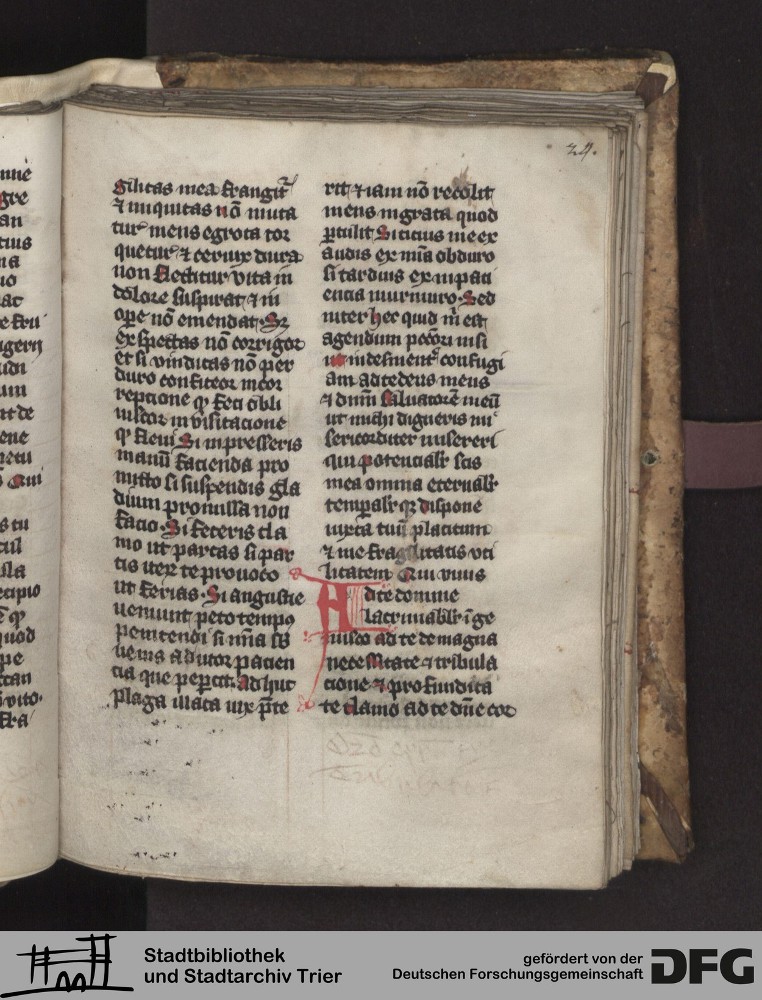 nne
gre
an
cius
na
io
ac
e fru
igerȷ
udi
um
nt de
ene
netu
Qui
s tu
tul
ula
ecipio
quod
pe
ccan
o vito.
fra
24.
gilitas mea frangit᷑
⁊ iniquitas nō muta
tur᷑ mens egrota tor
quetur᷑ ⁊ ceruix dura
non flectitur vita in
dolore suspirat ⁊ in
ope nō emendat. Sꝫ
exspectas nō corrigor
et si vindicas nō per
duro confiteor in cor
reptione qͥ feci obli
uiscor in visitacione
qͥ fleui Si in presseris
manū facienda pro
mitto si suspendis gla
dium promissa non
facio. Si feteris cla
mo ut parcas si par
cis iteꝝ te prouoco
ut ferias. Si angustie
ueniunt peto tempꝰ
penitendi si mīa sb
uenis abutor pacien
cia que pepercit. Adhuc
plaga illata uix p̄te
rit ⁊ iam nō recolit
mens ingrata quod
ꝑtulit Si cicius me ex
audis ex mīa obduro
si tardius ex inpaci
encia murmuro. Sed
inter hec quid m̄ est
agendum pecc̄ori nisi
ut indesinent᷑ confugi
am ad te deus meus
⁊ dn̄m saluatorē meū
ut michi digneris mi
sericorditer misereri
qui potencialr̄ scis
mea omnia eternalr̄
temporalr̄qꝫ dispone
iuxta tuū placitum
⁊ me fragilitatis vti
litatem Qui viuis
Ad te domine
lacrimabilr̄ īge
misco ad te de magna
necessitate ⁊ tribula
cione ⁊ profundita
te clamo ad te dn̄e cor
Stadtbibliothek
und Stadtarchiv Trier
gefördert von der
Deutschen Forschungsgemeinschaft
DFG